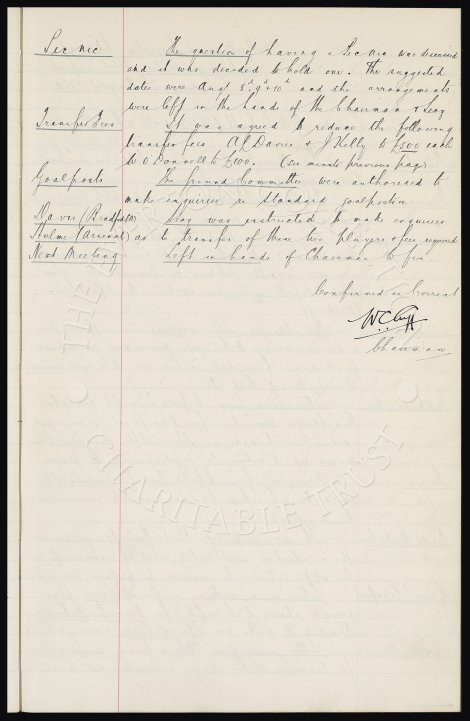 Pic nic The question of having a Pic nic was discussed
and it was decided to hold one. The suggested
dates were Augt 8th, 9th & 10th and the arrangements
were left in the hands of the Chairman & Secy
Transfer Fees It was agreed to reduce the following
transfer fees A.L Davies & J Kelly to £500 each
& O'Donnell to £100. (see minute previous page)
Goalposts The Ground Committee were authorised to
make enquiries re Standard goalposts
Davis (Bradford) Secy was instructed to make enquiries
Hulme (Arsenal) as to transfer of these two players & fees required
Next Meeting Left in hands of Chairman to fix
Confirmed as Correct
W.C. Cuff
Chairman
CHARITABLE TRUST